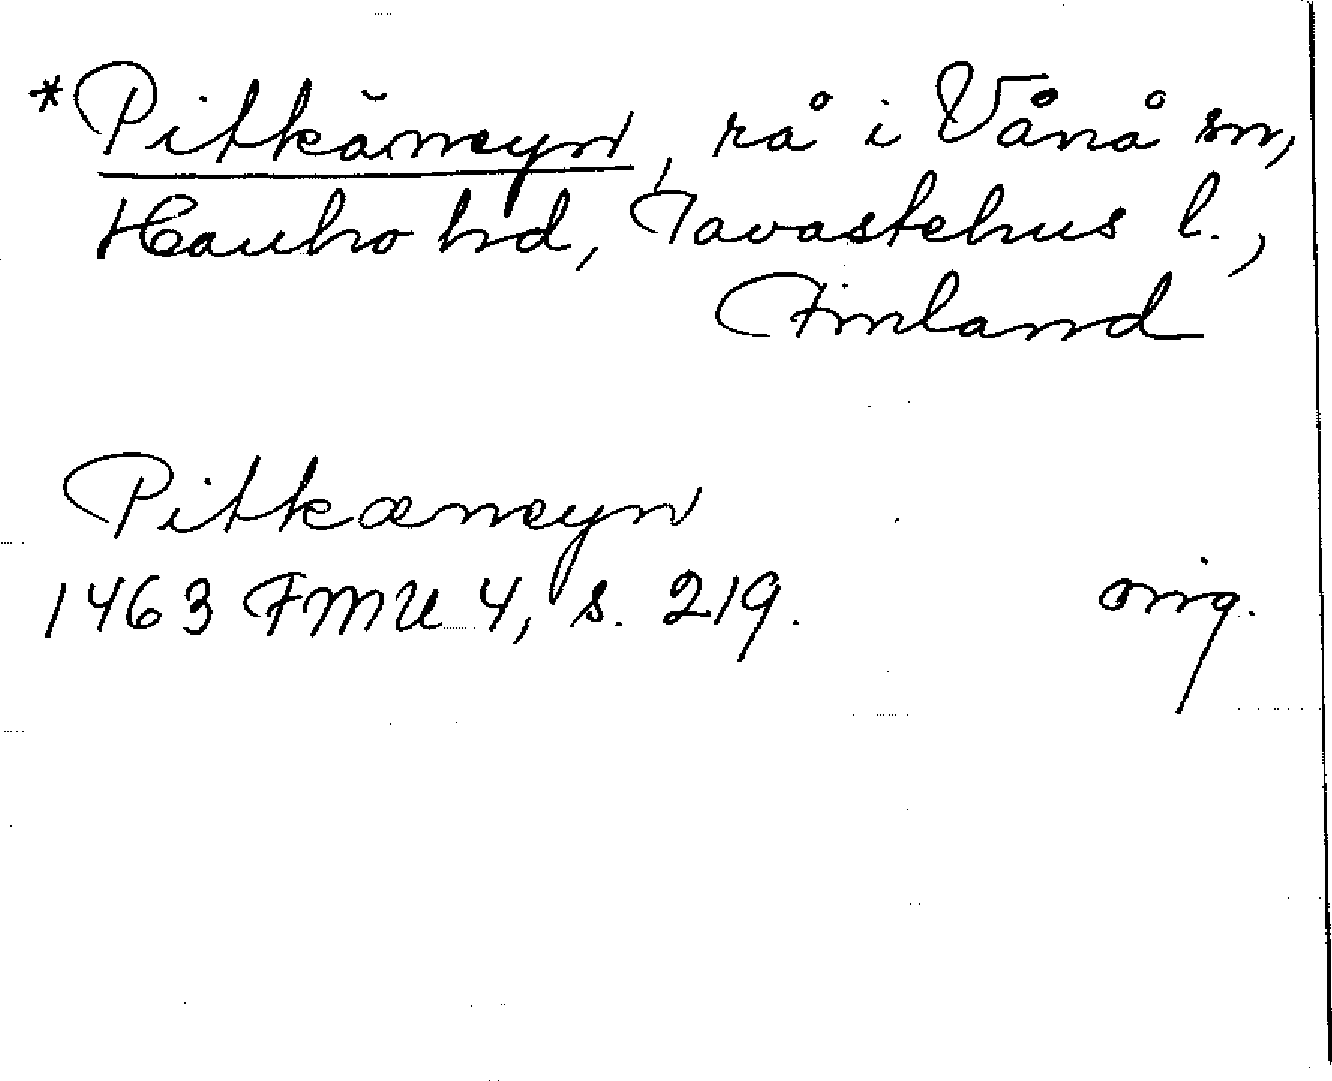 *Pitkäneyn, rå i Vånå sn,
Hauho hd, Tavastehus l.,
Finland
Pitkæneyn
1463 FMU 4, s. 219. orig.